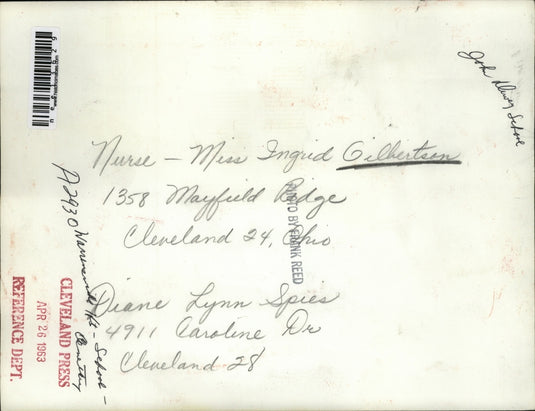 Nurse - Miss Ingrid Gilbertson
1358 Mayfield Ridge
Cleveland 24, Ohio
Diane Lynn Spies
4911 Caroline Dr
Cleveland 28
PHOTO BY FRANK REED
John Dewey School
A2930 Warrensville Hts - School -
CLEVELAND PRESS
APR 26 1963
REFERENCE DEPT.